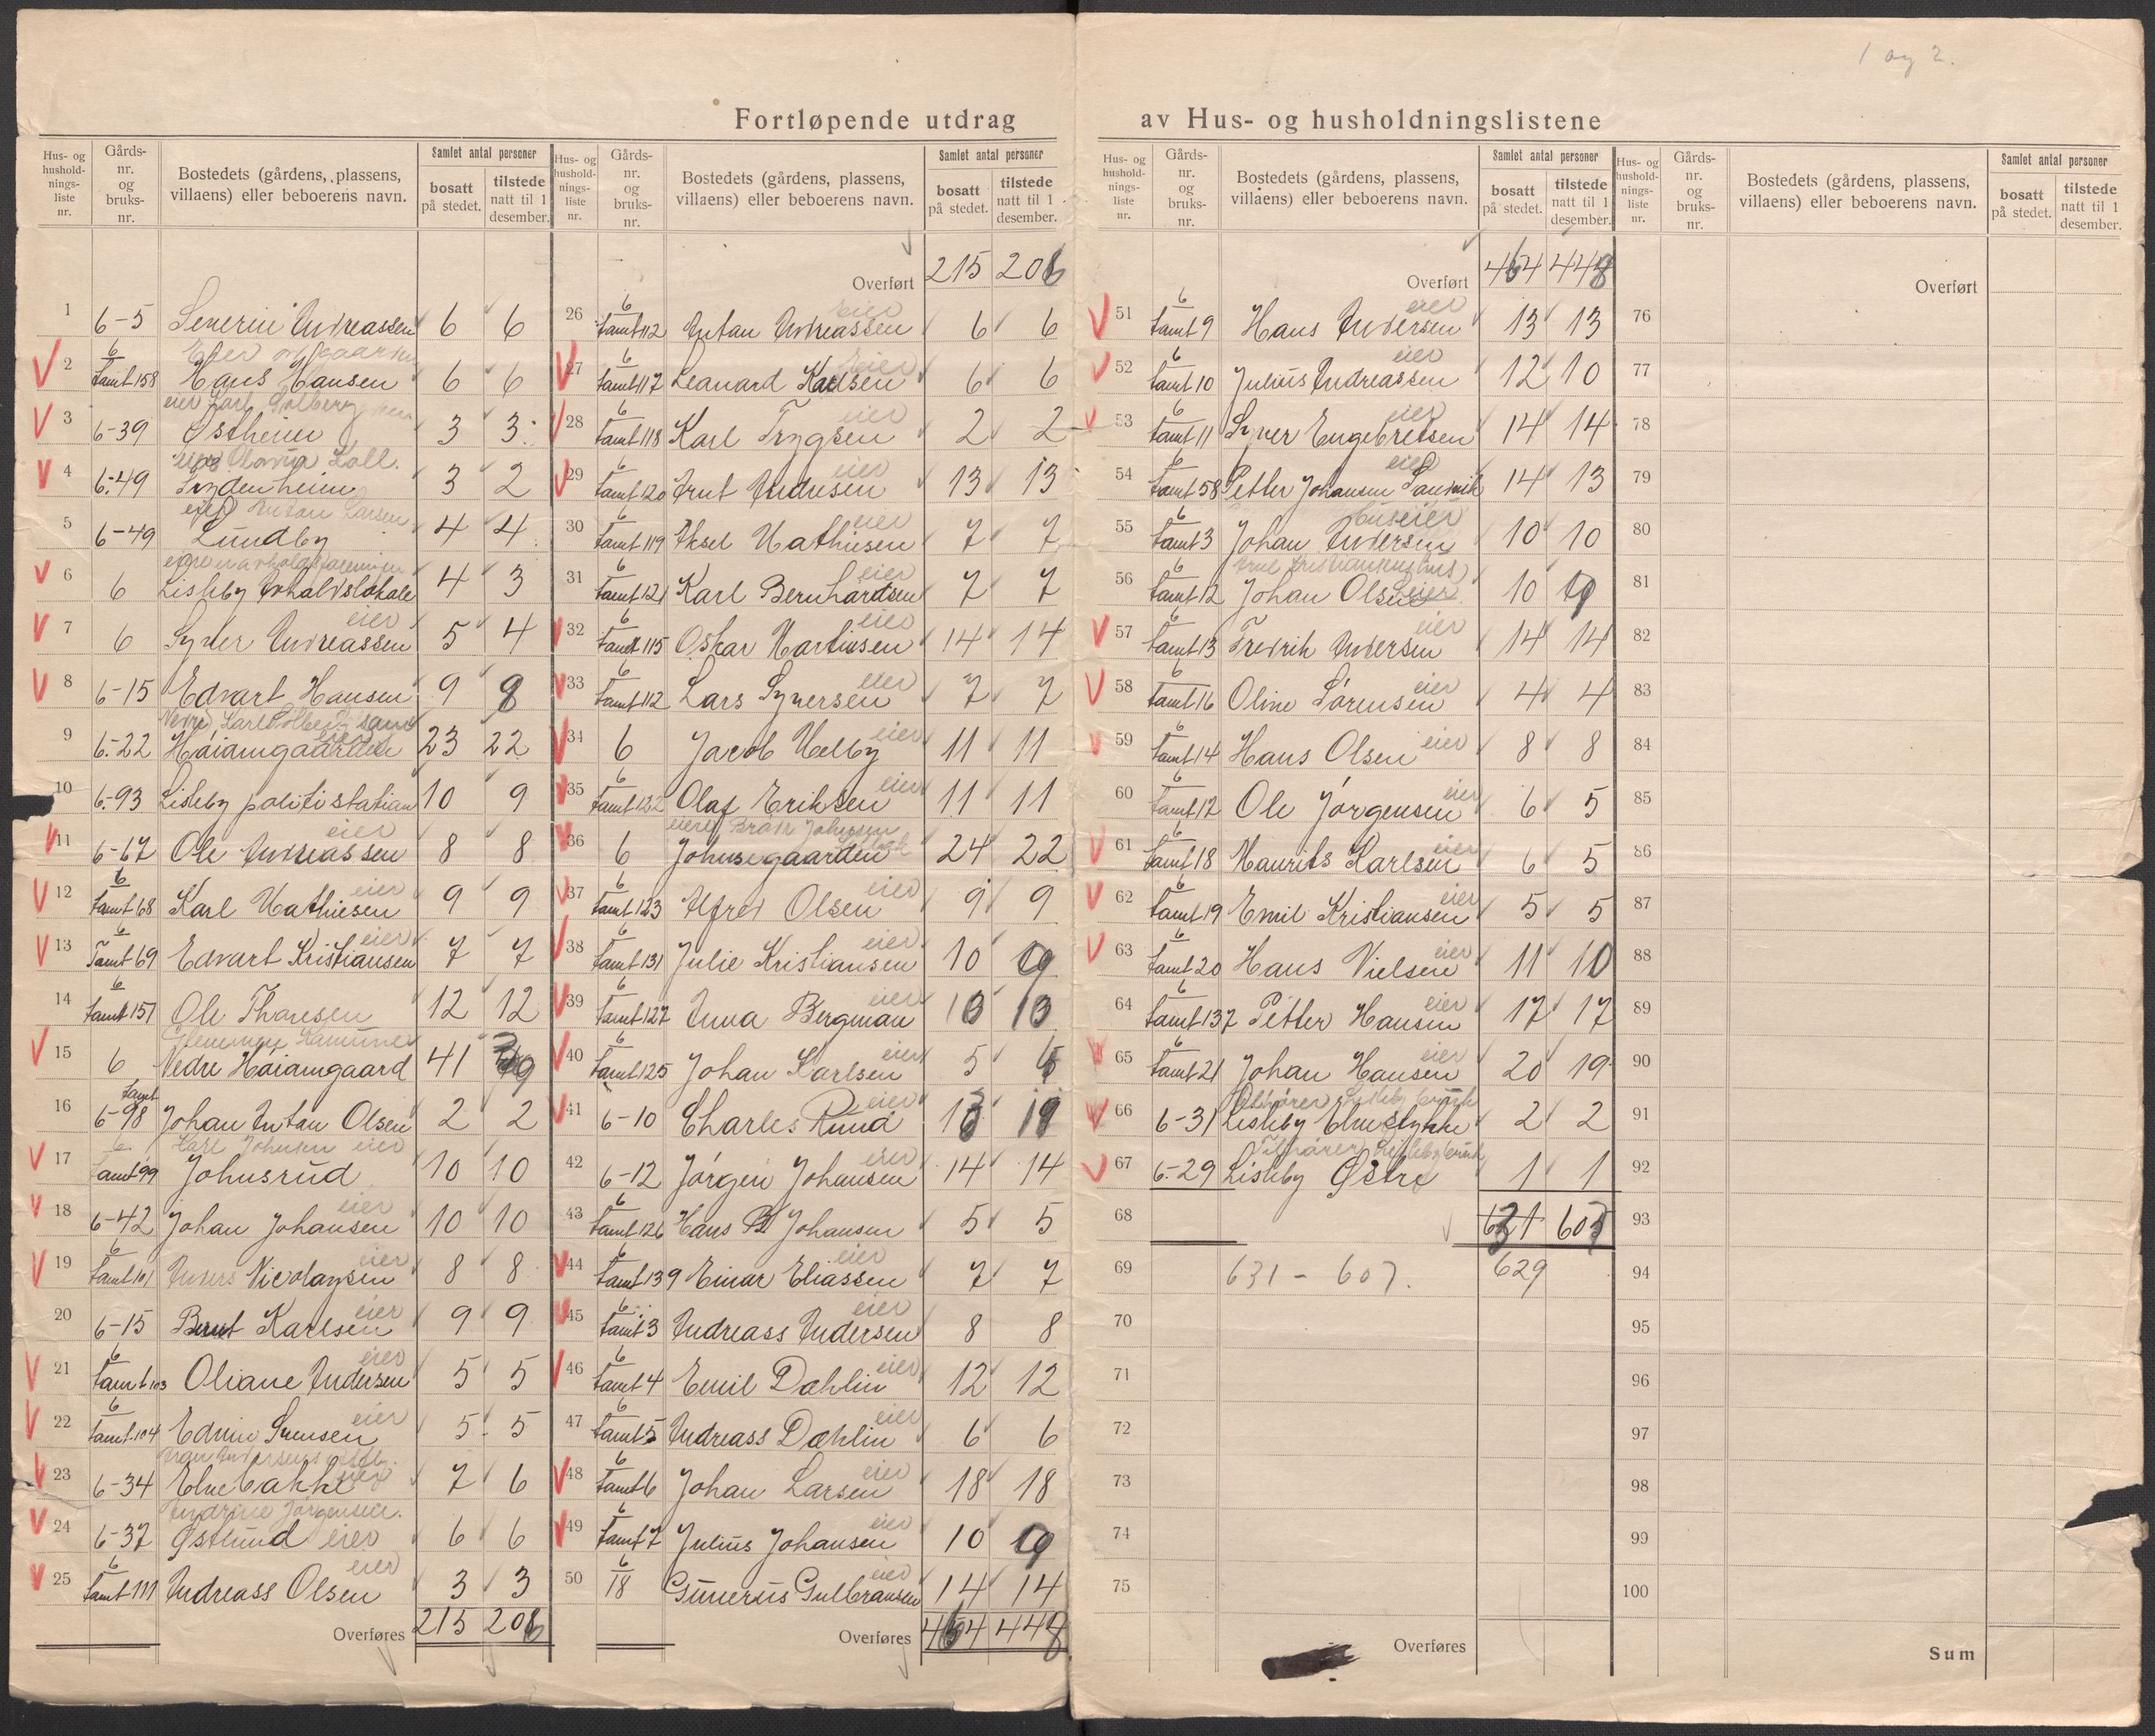 1 og 2.
Fortløpende utdrag av Hus- og husholdningslistene
Hus- og hushold-nings-liste nr. Gårds-nr. og bruks-nr. Bostedets (gårdens, plassens, villaens) eller beboerens navn. Samlet antal personer bosatt på stedet. tilstede natt til 1 desember.
1 6-5 Severin Andreassen 6 6
Eier av gaarden
2 6 tomt 158 Hans Hansen 6 6
eier Karl Solberg
3 6-39 Østheim 3 3
eier Olavia Soll.
4 6-49 Lyndenheim 3 2
eier Anton Larsen
5 6-49 Lundby 4 4
eier avholdsforening
6 6 Lisleby Avholdslokale 4 3
7 6 Syver Andreassen eier 5 4
8 6-15 Edvart Hansen 9 8
Nedre Karl Solberg samt eier
9 6-22 Høiamgaarden 23 22
10 6-93 Lisleby politistation 10 9
11 6-67 Ole Andreassen eier 8 8
12 6 tomt 68 Karl Mathiesen eier 9 9
13 6 Tomt 69 Edvart Kristiansen eier 7 7
14 6 tomt 151 Ole Thoresen 12 12
Glemmen Kommune
15 6 Nedre Høiamgaard 41 39
16 tomt 6-98 Johan Anton Olsen 2 2
Karl Johnsen eier
17 6 tomt 99 Johnsrud 10 10
18 6-42 Johan Johansen eier 10 10
19 6 tomt 101 Anders Nicolaysen eier 8 8
20 6-15 Bernt Karlsen eier 9 9
21 6 tomt 103 Oliane Andersen eier 5 5
22 6 tomt 104 Edvin Svensen eier 5 5
23 6-34 Elvebakke eier 7 6
Andrine Jørgensen.
24 6-37 Østlund eier 6 6
25 6 tomt 111 Andreass Olsen eier 3 3
Overføres 215 208
Hus- og hushold-nings-liste nr. Gårds-nr. og bruks-nr. Bostedets (gårdens, plassens, villaens) eller beboerens navn. Samlet antal personer bosatt på stedet. tilstede natt til 1 desember.
Overført 215 208
26 6 tomt 112 Anton Andreassen eier 6 6
27 6 tomt 117 Leonard Karlsen eier 6 6
28 6 tomt 118 Karl Trygsen eier 2 2
29 6 tomt 120 Arnt Andresen eier 13 13
30 6 tomt 119 Aksel Mathiesen eier 7 7
31 6 tomt 121 Karl Bernhardsen eier 7 7
32 6 tomt 115 Oskar Martinsen eier 14 14
33 6 tomt 112 Lars Syversen eier 7 7
34 6 Jacob Melby eier 11 11
35 6 tomt 122 Olaf Eriksen eier 11 11
eiere Brødr Johnsen
36 6 Johnsegaarden 24 22
37 6 tomt 123 Alfred Olsen eier 9 9
38 6 tomt 131 Julie Kristiansen eier 10 9
39 6 tomt 127 Anna Bergman eier 13 13
40 6 tomt 125 Johan Karlsen eier 5 5
41 6-10 Charles Rund eier 13 19
42 6-12 Jørgen Johansen eier 14 14
43 6 tomt 126 Hans B Johansen 5 5
44 6 tomt 139 Einar Eliassen eier 7 7
45 6 tomt 3 Andreass Andersen eier 8 8
46 6 tomt 4 Emil Dahlin eier 12 12
47 6 tomt 5 Andreass Dahlin eier 6 6
48 6 tomt 6 Johan Larsen eier 18 18
49 6 tomt 7 Julius Johansen eier 10 9
50 6 18 Gunerius Gulbransen eier 14 14
Overføres 464 448
Hus- og hushold-nings-liste nr. Gårds-nr. og bruks-nr. Bostedets (gårdens, plassens, villaens) eller beboerens navn. Samlet antal personer bosatt på stedet. tilstede natt til 1 desember.
Overført 464 448
51 6 tomt 9 Hans Andersen eier 13 13
52 6 tomt 10 Julius Andreassen eier 12 10
53 6 tomt 11 Syver Engebretsen eier 14 14
54 6 tomt 58 Petter Johansen Sandvik eier 14 13
55 6 tomt 3 Johan Andersen huseier 10 10
56 6 tomt 12 Johan Olsen eier 10 9
57 6 tomt 13 Fredrik Andersen eier 14 14
58 6 tomt 16 Oline Sørensen eier 4 4
59 6 tomt 14 Hans Olsen eier 8 8
60 6 tomt 12 Ole Jørgensen eier 6 5
61 6 tomt 18 Maurits Karlsen eier 6 5
62 6 tomt 19 Emil Kristiansen eier 5 5
63 6 tomt 20 Hans Nielsen eier 11 10
64 6 tomt 137 Petter Hansen eier 17 17
65 6 tomt 21 Johan Hansen eier 20 19
Tilhører Lisleby bruk
66 6-31 Lisleby Elvestykke 2 2
Tilhører Lisleby bruk
67 6-29 Lisleby Østre 1 1
68 631 607
69 631 - 607. 629
70
71
72
73
74
75
Overføres
Hus- og hushold-nings-liste nr. Gårds-nr. og bruks-nr. Bostedets (gårdens, plassens, villaens) eller beboerens navn. Samlet antal personer bosatt på stedet. tilstede natt til 1 desember.
Overført
76
77
78
79
80
81
82
83
84
85
86
87
88
89
90
91
92
93
94
95
96
97
98
99
100
Sum